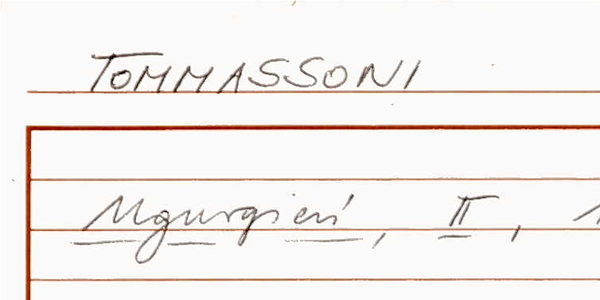 TOMMASSONI
Ugurgieri, II,